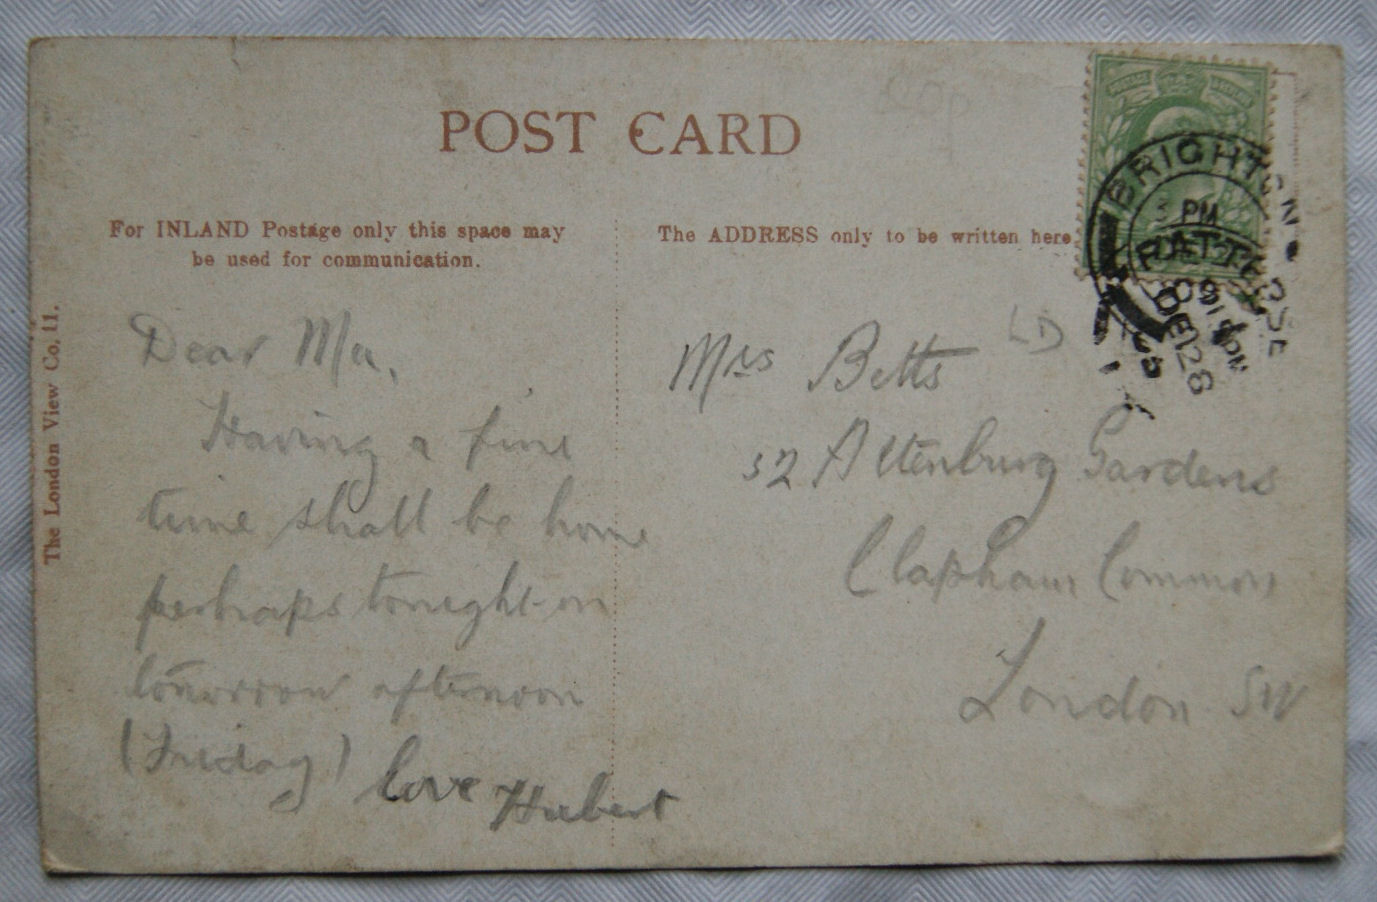 POST CARD
For INLAND Postage only this space may
be used for communication.
The ADDRESS only to be written here
The London View Co. Ll.
Dear Ma,
Having a fine
time shall be home
perhaps tonight or
tomorrow afternoon
(Friday) love Hubert
Mrs Betts
32 Altenburg Gardens
Clapham Common
London SW
LD
BRIGHTON
PM
BATTERSE
DE 28